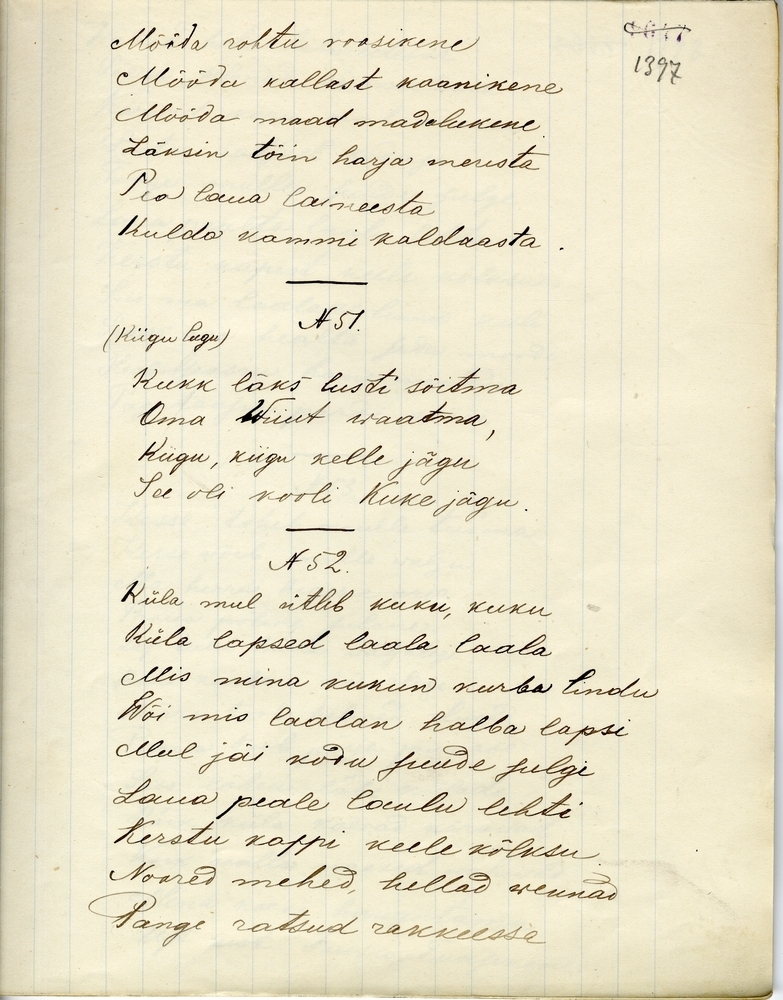 1397
Mööda rohtu roosikene
Mööda kallast kaanikene
Mööda maad madalukene
Läksin tõin harja merista
Pea laua laineesta
Kulda kammi kaldaasta.
N 51.
(Kiigu lugu)
Kukk läks lusti sõitma
Oma Wiiut waatma,
Kiigu, kiigu kelle jägu
See oli kooli Kuke jägu.
N 52.
Küla mul ütleb kuku, kuku
Küla lapsed laala laala
Mis mina kukun kurba lindu
Wõi mis laalan halba lapsi
Mul jäi kodu suude sulgi
Laua peale laulu lehti
Kerstu kappi keele kõlksu.
Noored mehed, hellad wennad
Pange ratsud rakkeesse